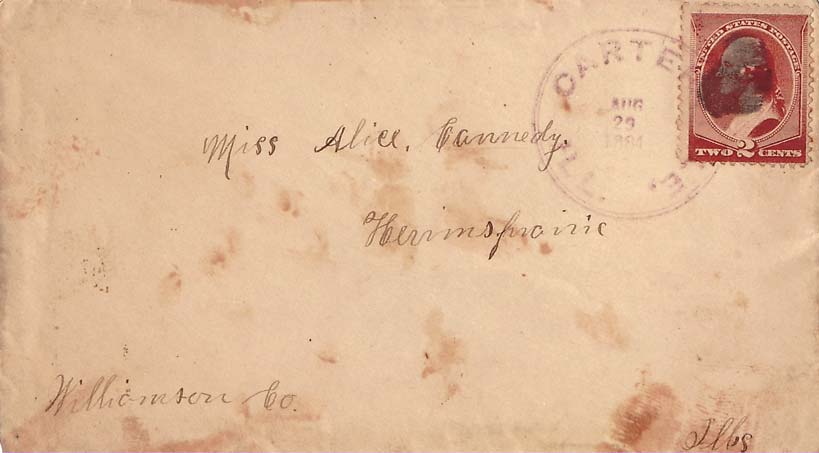 UNITED STATES POSTAGE
TWO 2 CENTS
CARTE E,
AUG
29
ILL.
Miss Alice. Cannedy.
Herrinsprairie
Williamson Co.
Ills